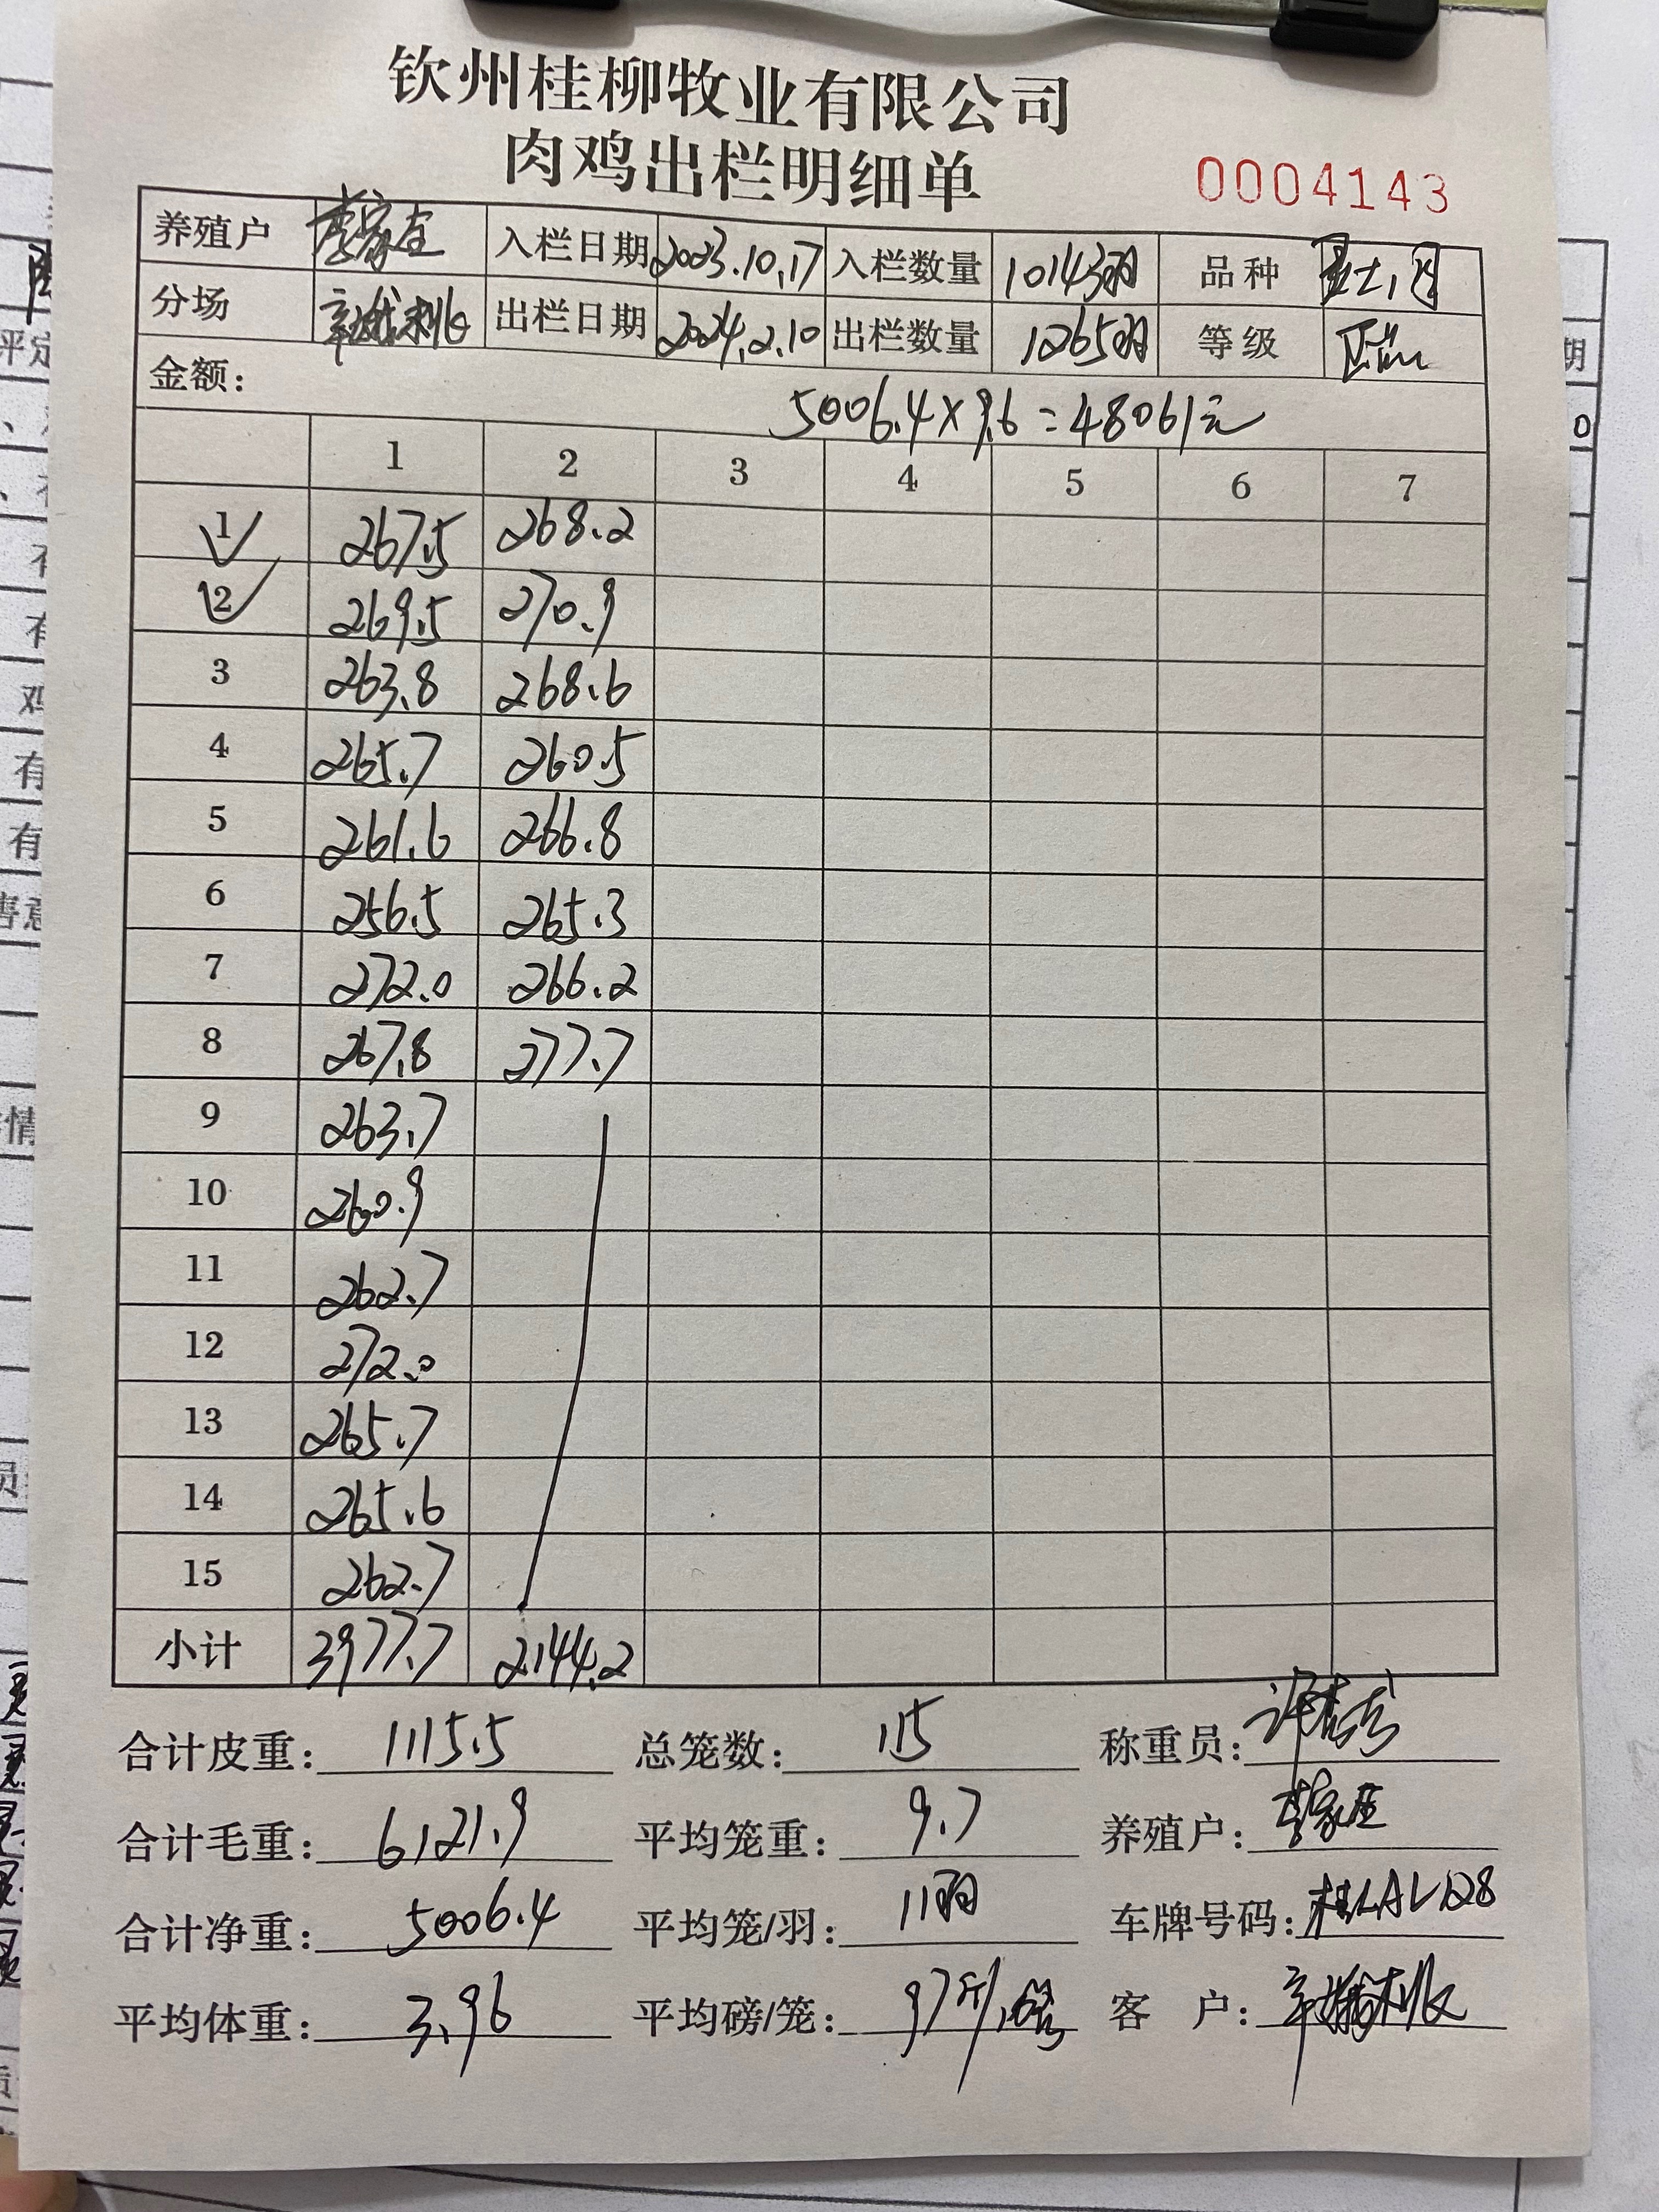 钦州桂柳牧业有限公司
肉鸡出栏明细单
0004143
养殖户 李家 入栏日期 2023.10.17 入栏数量 10143羽 品种
分场 出栏日期 2024.2.10 出栏数量 1265羽 等级
金额: 5006.4×9.6=48061元
1 2 3 4 5 6 7
1 267.5 268.2
2 269.5 270.9
3 263.8 268.6
4 265.7 260.5
5 261.6 266.8
6 256.5 265.3
7 272.0 266.2
8 267.8 277.7
9 263.7
10 260.9
11 262.7
12 272.0
13 265.7
14 265.6
15 262.7
小计 3977.7 2144.2
合计皮重: 1115.5 总笼数: 115 称重员: 许
合计毛重: 6121.9 平均笼重: 9.7 养殖户: 李家
合计净重: 5006.4 平均笼/羽: 11羽 车牌号码:
平均体重: 3.96 平均磅/笼: 客 户: